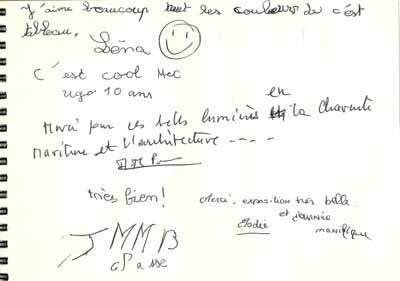 J'aime beaucoup tout les couleurs de c'est
tableau.
Léna
C'est cool Mec
ugo 10 ans
Merci pour ces belles lumières en la Charente
Maritime et l'architecture ----
très bien!
Merci, exposition très belle
et journée
Elodie magnifique
JMMB